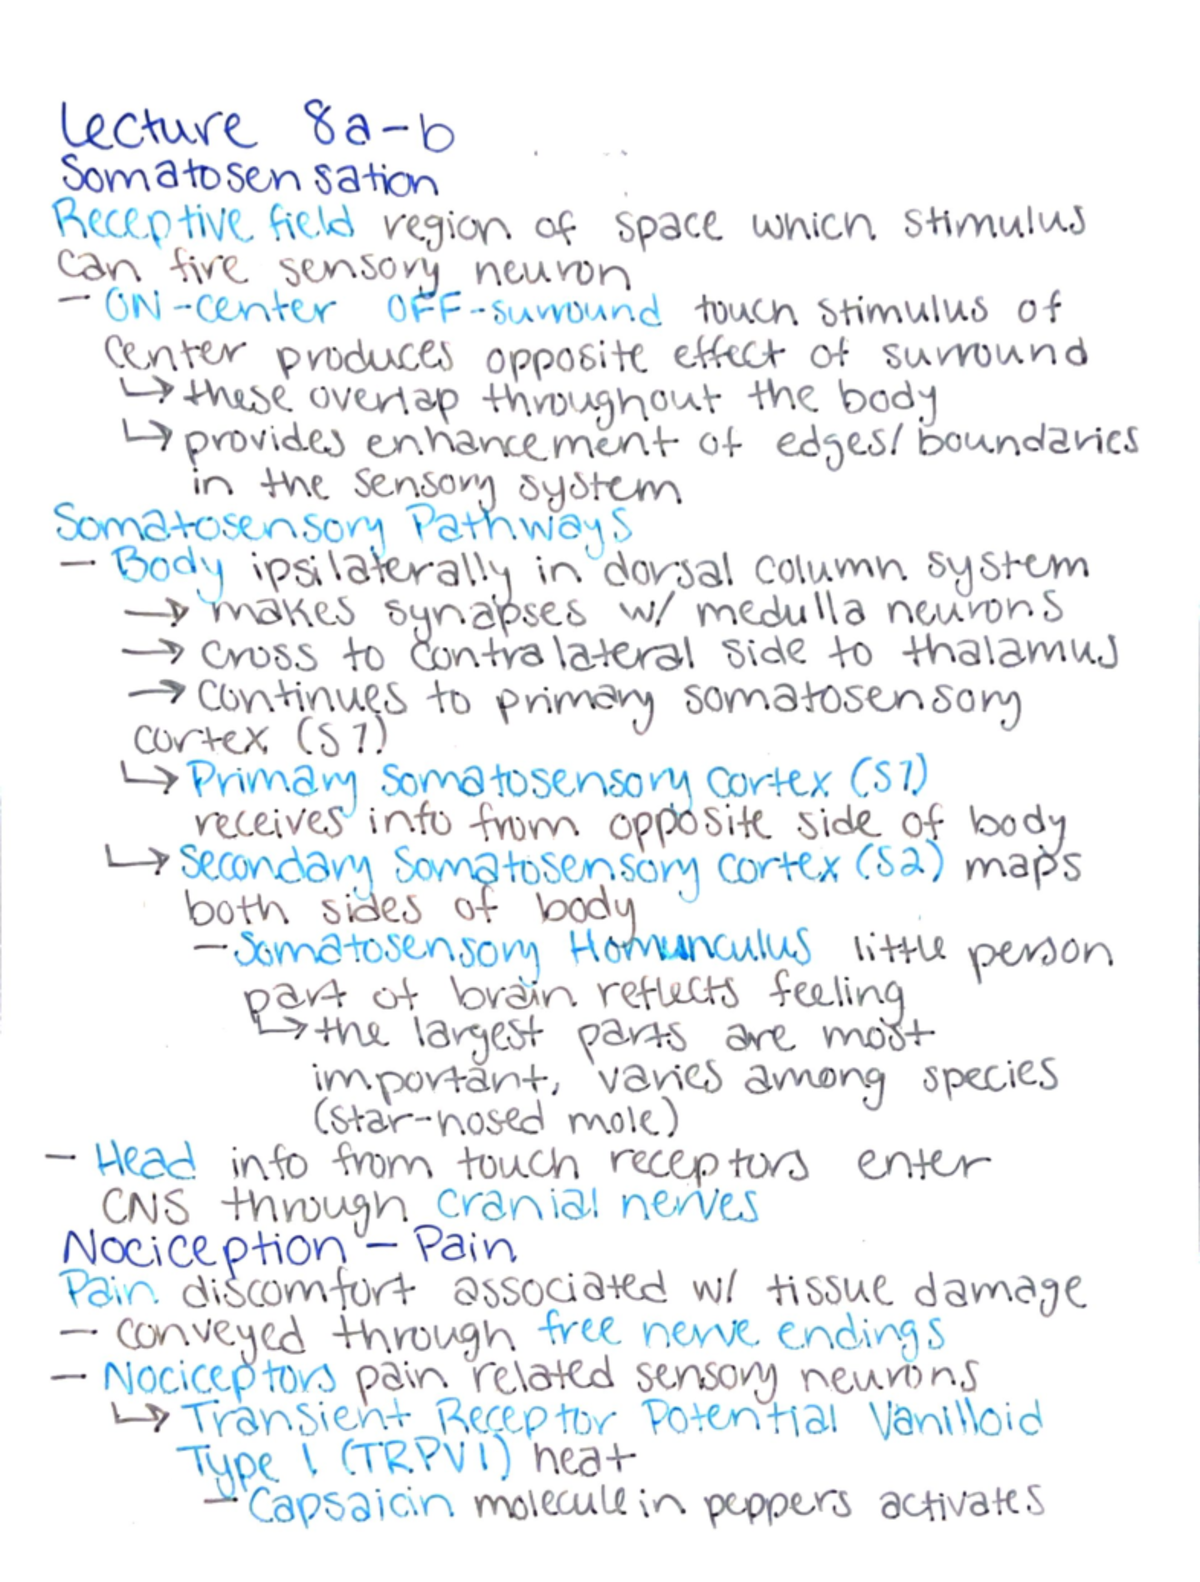 Lecture 8a-b
Somatosensation
Receptive field region of space which stimulus
can fire sensory neuron
- ON-center OFF-surround touch stimulus of
center produces opposite effect of surround
↳ these overlap throughout the body
↳ provides enhancement of edges/boundaries
in the sensory system
Somatosensory Pathways
- Body ipsilaterally in dorsal column system
→ makes synapses w/ medulla neurons
→ cross to contralateral side to thalamus
→ continues to primary somatosensory
cortex (S1)
↳ Primary Somatosensory cortex (S1)
receives info from opposite side of body
↳ Secondary Somatosensory cortex (S2) maps
both sides of body
- Somatosensory Homunculus little person
part of brain reflects feeling
↳ the largest parts are most
important, varies among species
(star-nosed mole)
- Head info from touch receptors enter
CNS through cranial nerves
Nociception - Pain
Pain discomfort associated w/ tissue damage
- conveyed through free nerve endings
- Nociceptors pain related sensory neurons
↳ Transient Receptor Potential Vanilloid
Type 1 (TRPV1) heat
- Capsaicin molecule in peppers activates